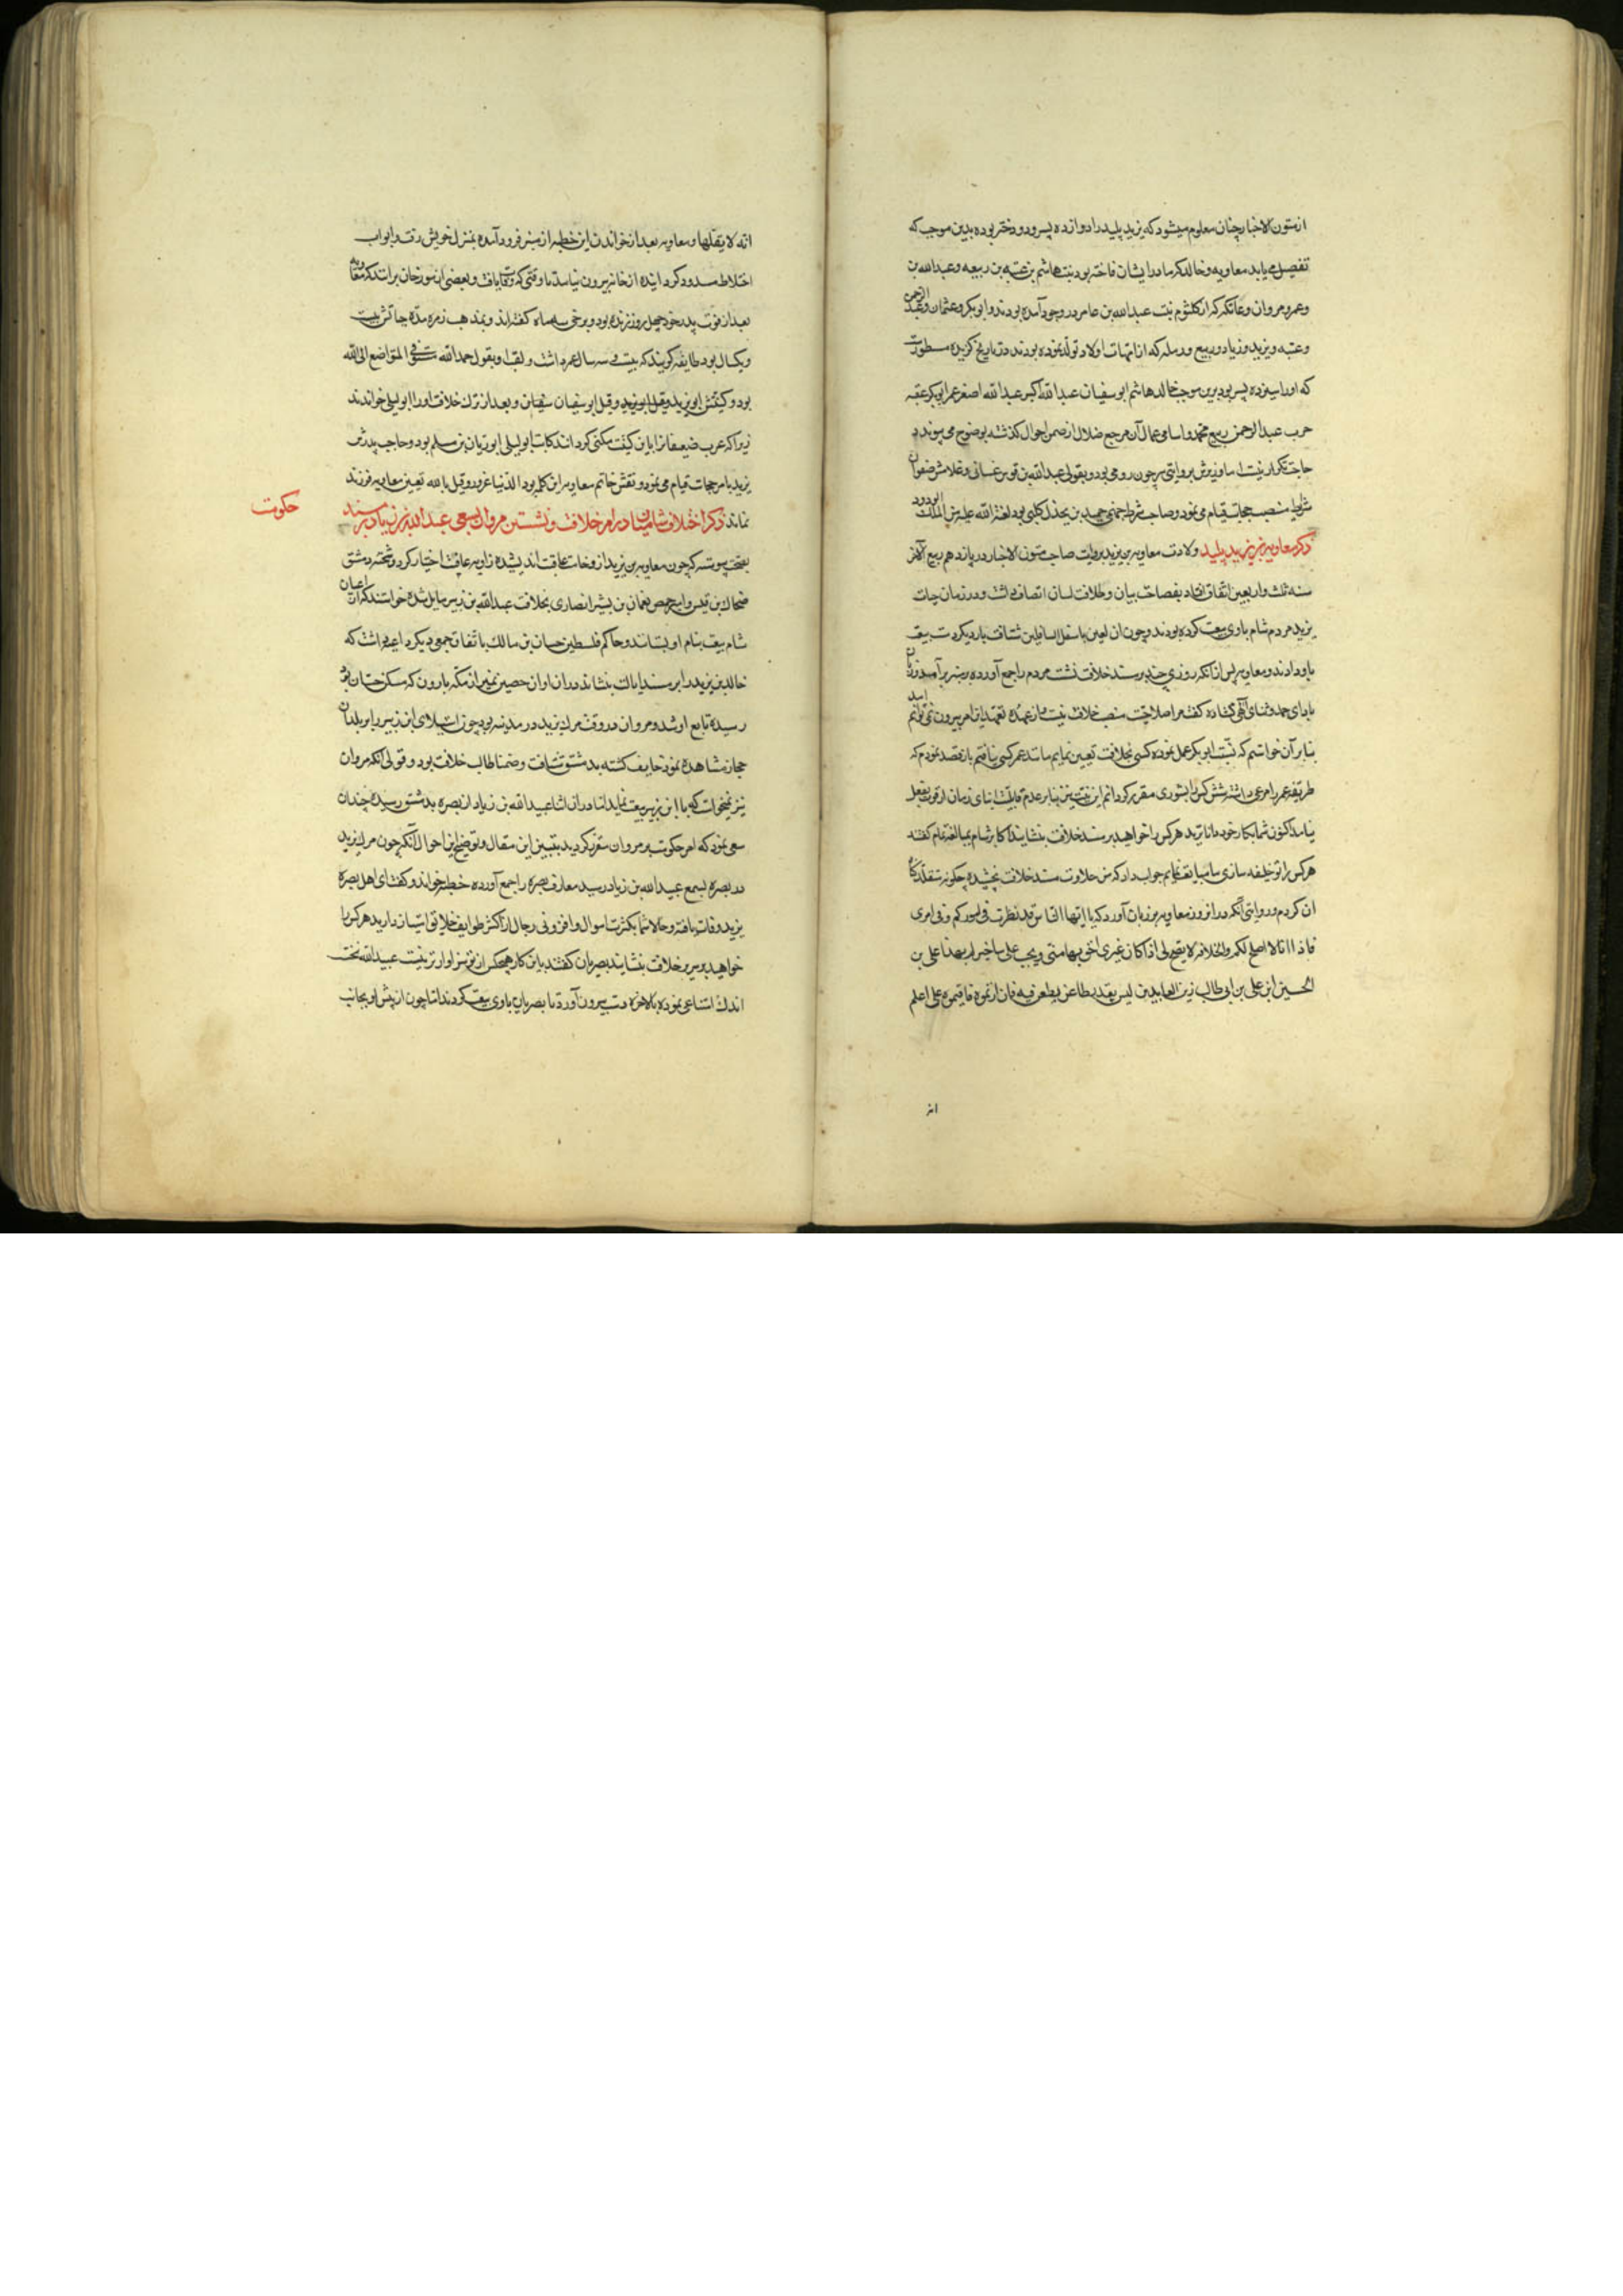 از متون الاخبار چنان معلوم میشود که یزید پلید را دوازده پسر و دو دختر بوده بدین موجب که
تفصیل می یابد معاویه و خالد که مادر ایشان فاخته بود بنت هاشم بن عتبه بن ربیعه و عبد الله بن
وعمرو مروان و عاتکه که از کلثوم بنت عبد الله بن عامر در وجود آمده بودند و ابو بکر و عثمان و عبد الرحمن
و عتبه و یزید و زیاد و ربیع و رمله که از امهات اولاد تولد نموده بودند و در تاریخ کزیده مسطورست
که او را سیزده پسر بود برین موجب خالد هاشم ابو سفیان عبد الله اکبر عبد الله اصغر عمر ابو بکر عتبه
حرب عبد الرحمن ربیع محمد و اسامی عمال آن مرجع ضلال از ضمن احوال کذشته بوضوح می پیوندد
حاجت تکرار نیست اما وزیرش بروایتی سرجون رومی بود و بقولی عبد الله بن اوس غسانی و غلامش صفوان
بمنصب حجابت قیام می نمود و صاحب شرطه حمید بن بحدل کلبی بود لعنة الله علیه من الملک الودود
ذکر معاویه بن یزید پلید ولادت معاویه بن یزید بروایت صاحب متون الاخبار در یازدهم ربیع الآخر
سنه ثلث و اربعین اتفاق افتاد بفصاحت بیان و طلاقت لسان اتصاف داشت و در زمان حیات
یزید مردم شام با وی بیعت کرده بودند و چون ان لعین باسفل السافلین شتافت بار دیکر دست بیعت
باو دادند و معاویه پس از انکه روزی چند بر مسند خلافت نشست مردم را جمع آورده بر منبر برآمد و زبان
بادای حمد و ثنای الهی کشاده کفت مرا صلاحیت منصب خلافت نیست و از عهده تعهد این امر بیرون نمی توانم امد
بنابر آن خواستم که بسنت ابو بکر عمل نموده کسی بخلافت تعیین نمایم مانند عمر کسی نیافتم باز قصد نمودم که
طریقه عمر را مرعی داشته شش کس را بشوری مقرر کردانم این نیت نیز بنابر عدم قابلیت ابنای زمان از قوت بفعل
نیامد اکنون شما بکار خود داناترید هر کس را خواهید بر مسند خلافت بنشانید اکابر شام بمبالغه تمام کفتند
هر کس را تو خلیفه سازی ما مبایعت نمایم جواب داد که من حلاوت مسند خلافت نچشیده چکونه متقلد
ان کردم و روایتی آنکه در انروز معاویه بر زبان آورد که یا ایها الناس قد نظرت فی امورکم و فی امری
فاذا انا لا اصلح لکم و الخلافه لا یصلح لی اذا کان غیری احق بها منی و یجب علی ان اخبرکم بهذا علی بن
الحسین ابن علی بن ابی طالب زین العابدین لیس یقدر طاعن یطعن فیه فان اردتموه فاقیموه علی اعلم
انه
انه لا یقبلها و معاویه بعد از خواندن این خطبه از منبر فرود آمده بمنزل خویش رفت و ابواب
اختلاط مسدود کردانیده از خانه بیرون نیامد تا وقتی که وفات یافت و بعضی از مورخان برانند که معاویه
بعد از فوت پدر خود چهل روز زنده بود و برخی سه ماه کفته اند و بمذهب زمره مدة حیاتش بیست
ویکسال بود طایفه کویند که بیست و سه سال عمر داشت و لقب او بقول حمد الله مستوفی المتواضع الی الله
بود و کنیتش ابو یزید وقیل ابو سفیان و بعد از ترک خلافت او را ابو لیلی خواندند
زیرا که عرب ضعیفانرا باین کنیت مکنی کردانند کاتب ابو لیلی ابو زبان بن مسلم بود و حاجب پدرش
یزید بامر حجابت قیام می نمود و نقش خاتم معاویه این کلمه بود الدنیا غرور وقیل بالله تعین معاویه فرزند
نماند ذکر اختلاف شامیان در امر خلافت و نشستن مروان بسعی عبد الله بن زیاد بر مسند
حکومت
بصحت پیوسته که چون معاویه بن یزید از وخامت عاقبت اندیشیده زاویه عافیت اختیار کرد و شحنه دمشق
ضحاک بن قیس و امیر حمص نعمان بن بشیر انصاری بخلافت عبد الله بن زبیر مایل شده خواستند که از اعیان
شام بیعت بنام او بستانند و حاکم فلسطین حسان بن مالک باتفاق جمعی دیکر داعیه داشت که
خالد بن یزید را بر مسند ایالت بنشاند در ان اوان حصین نمیر از مکه باردن که مسکن حسان بود
رسیده تابع او شد و مروان در وقت مرک یزید در مدینه بود چون استیلای ابن زبیر را بر بلدان
حجاز مشاهده نمود خایف کشته بدمشق شتافت و ضمنا طالب خلافت بود و قولی آنکه مروان
نیز میخواست که با ابن زبیر بیعت نماید اما در ان اثنا عبید الله بن زیاد از بصره بدمشق رسیده چندان
سعی نمود که امر حکومت بر مروان مقرر کردید تبیین این مقال و توضیح این احوال آنکه چون مرک یزید
در بصره بسمع عبید الله بن زیاد رسید معارف بصره را جمع آورده خطبه خواند و کفت ای اهل بصره
یزید وفات یافته و حالا شما بکثرت اموال و افزونی رجال از اکثر طوایف خلایق امتیاز دارید هر کس را
خواهید بر سریر خلافت بنشانید بصریان کفتند باین کار هیچکس از تو سزاوارتر نیست عبید الله نخست
اندک امتناعی نموده بالاخره دست بیرون آورد تا بصریان باوی بیعت کردند اما چون از پیش او بجانب